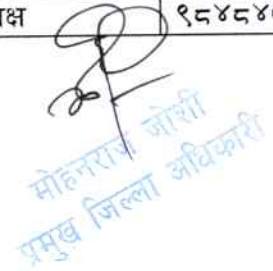 क्ष ९८४८४
मोहनराज जोशी
प्रमुख जिल्ला अधिकारी